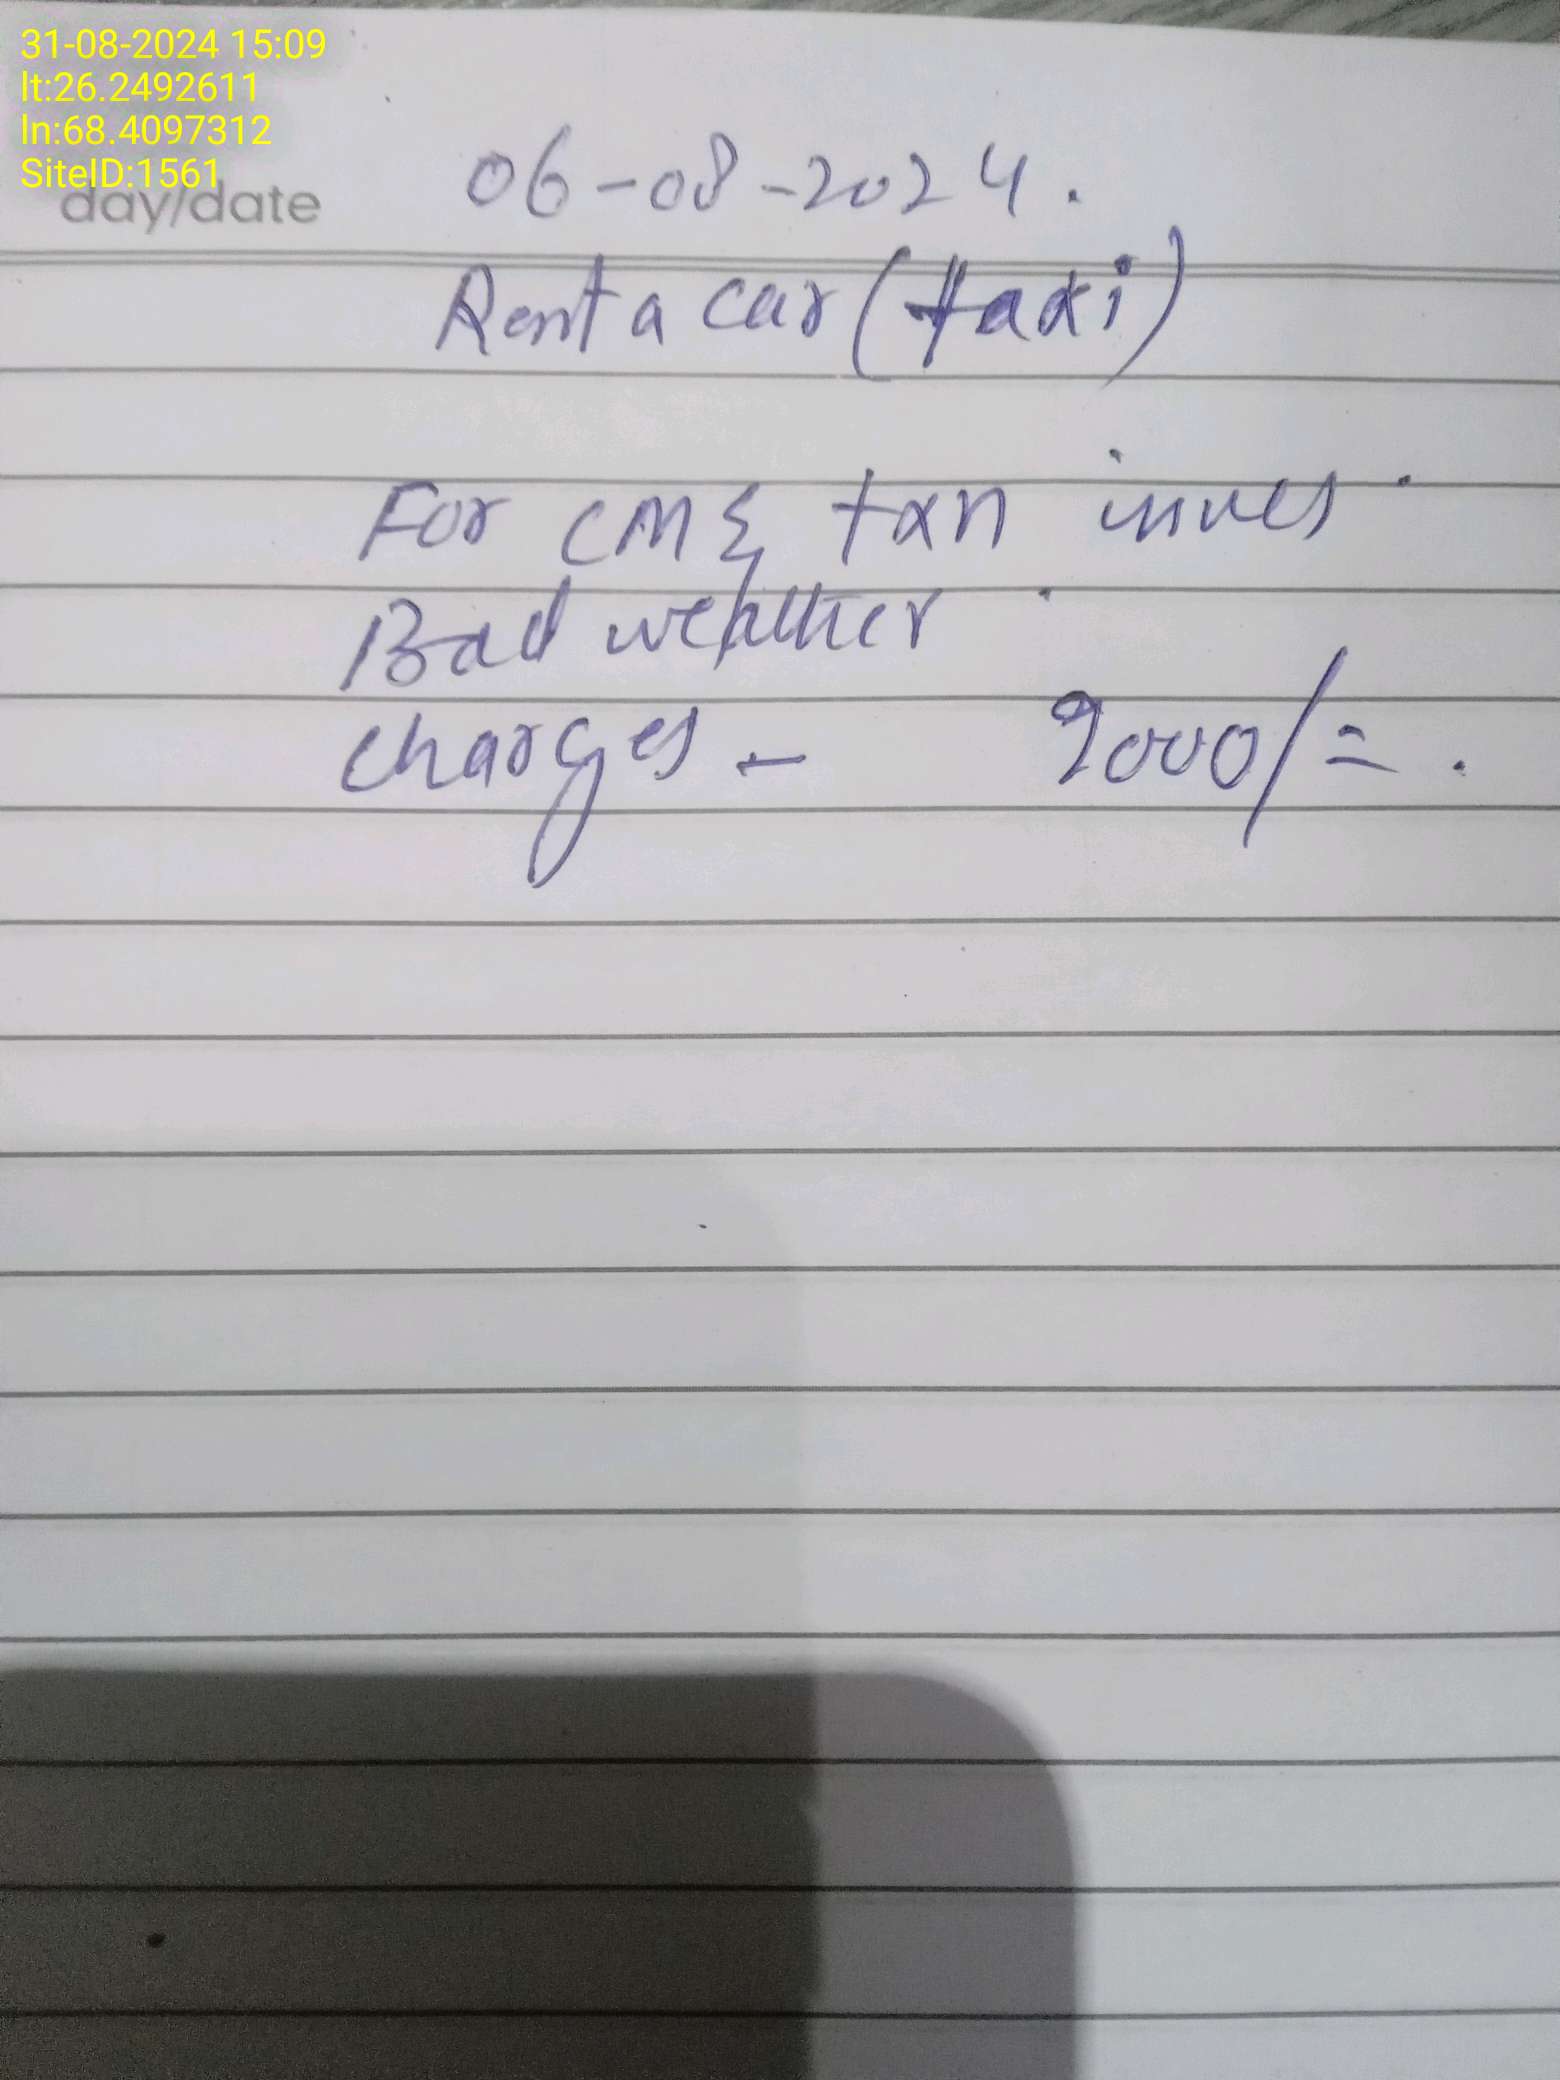 31-08-2024 15:09
lt:26.2492611
ln:68.4097312
SiteID:1561
day/date
06-08-2024.
Rent a car (taxi)
For CM & txn
Bad weather
charges - 2000/=.